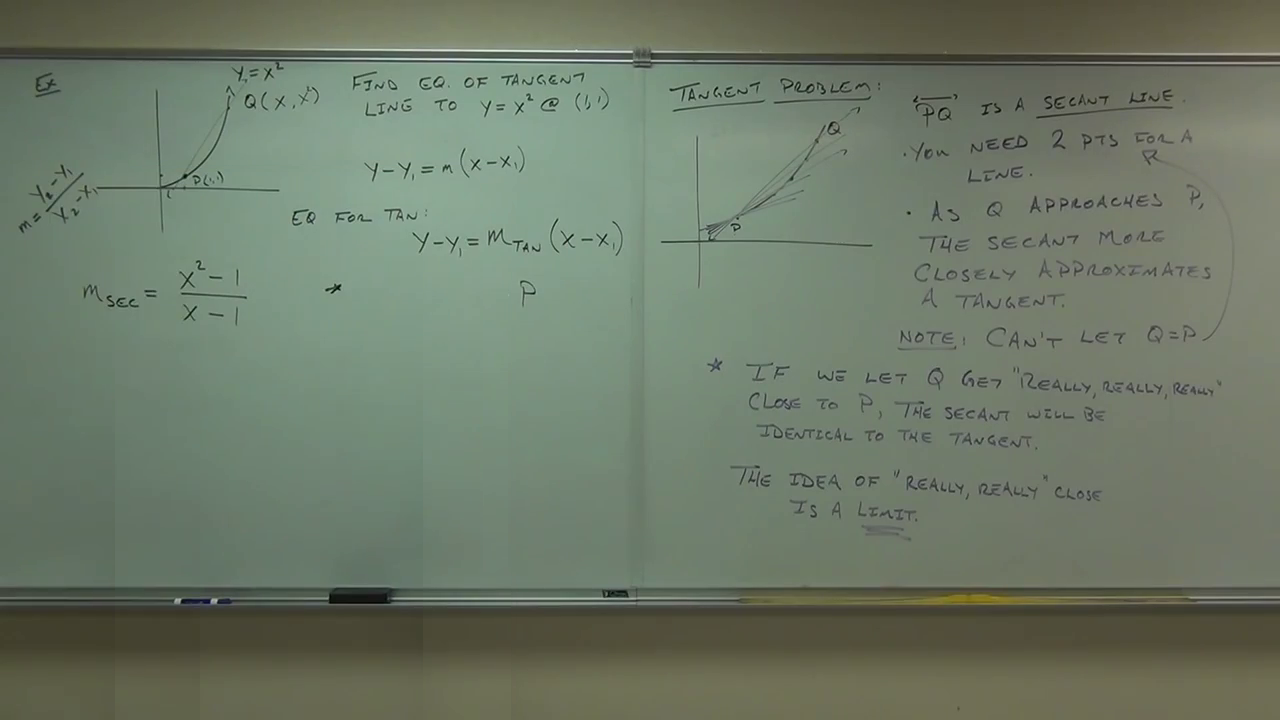 Ex
y = x²
Q(x, x²)
P(1,1)
m = y₂ - y₁ / x₂ - x₁
FIND EQ. OF TANGENT
LINE TO y = x² @ (1,1)
y - y₁ = m(x - x₁)
EQ FOR TAN:
y - y₁ = m_TAN (x - x₁)
m_SEC = x² - 1 / x - 1
* P
TANGENT PROBLEM:
Q
P
PQ IS A SECANT LINE.
· YOU NEED 2 PTS FOR A
LINE.
· AS Q APPROACHES P,
THE SECANT MORE
CLOSELY APPROXIMATES
A TANGENT.
NOTE: CAN'T LET Q=P
* IF WE LET Q GET "REALLY, REALLY, REALLY"
CLOSE TO P, THE SECANT WILL BE
IDENTICAL TO THE TANGENT.
THE IDEA OF "REALLY, REALLY" CLOSE
IS A LIMIT.